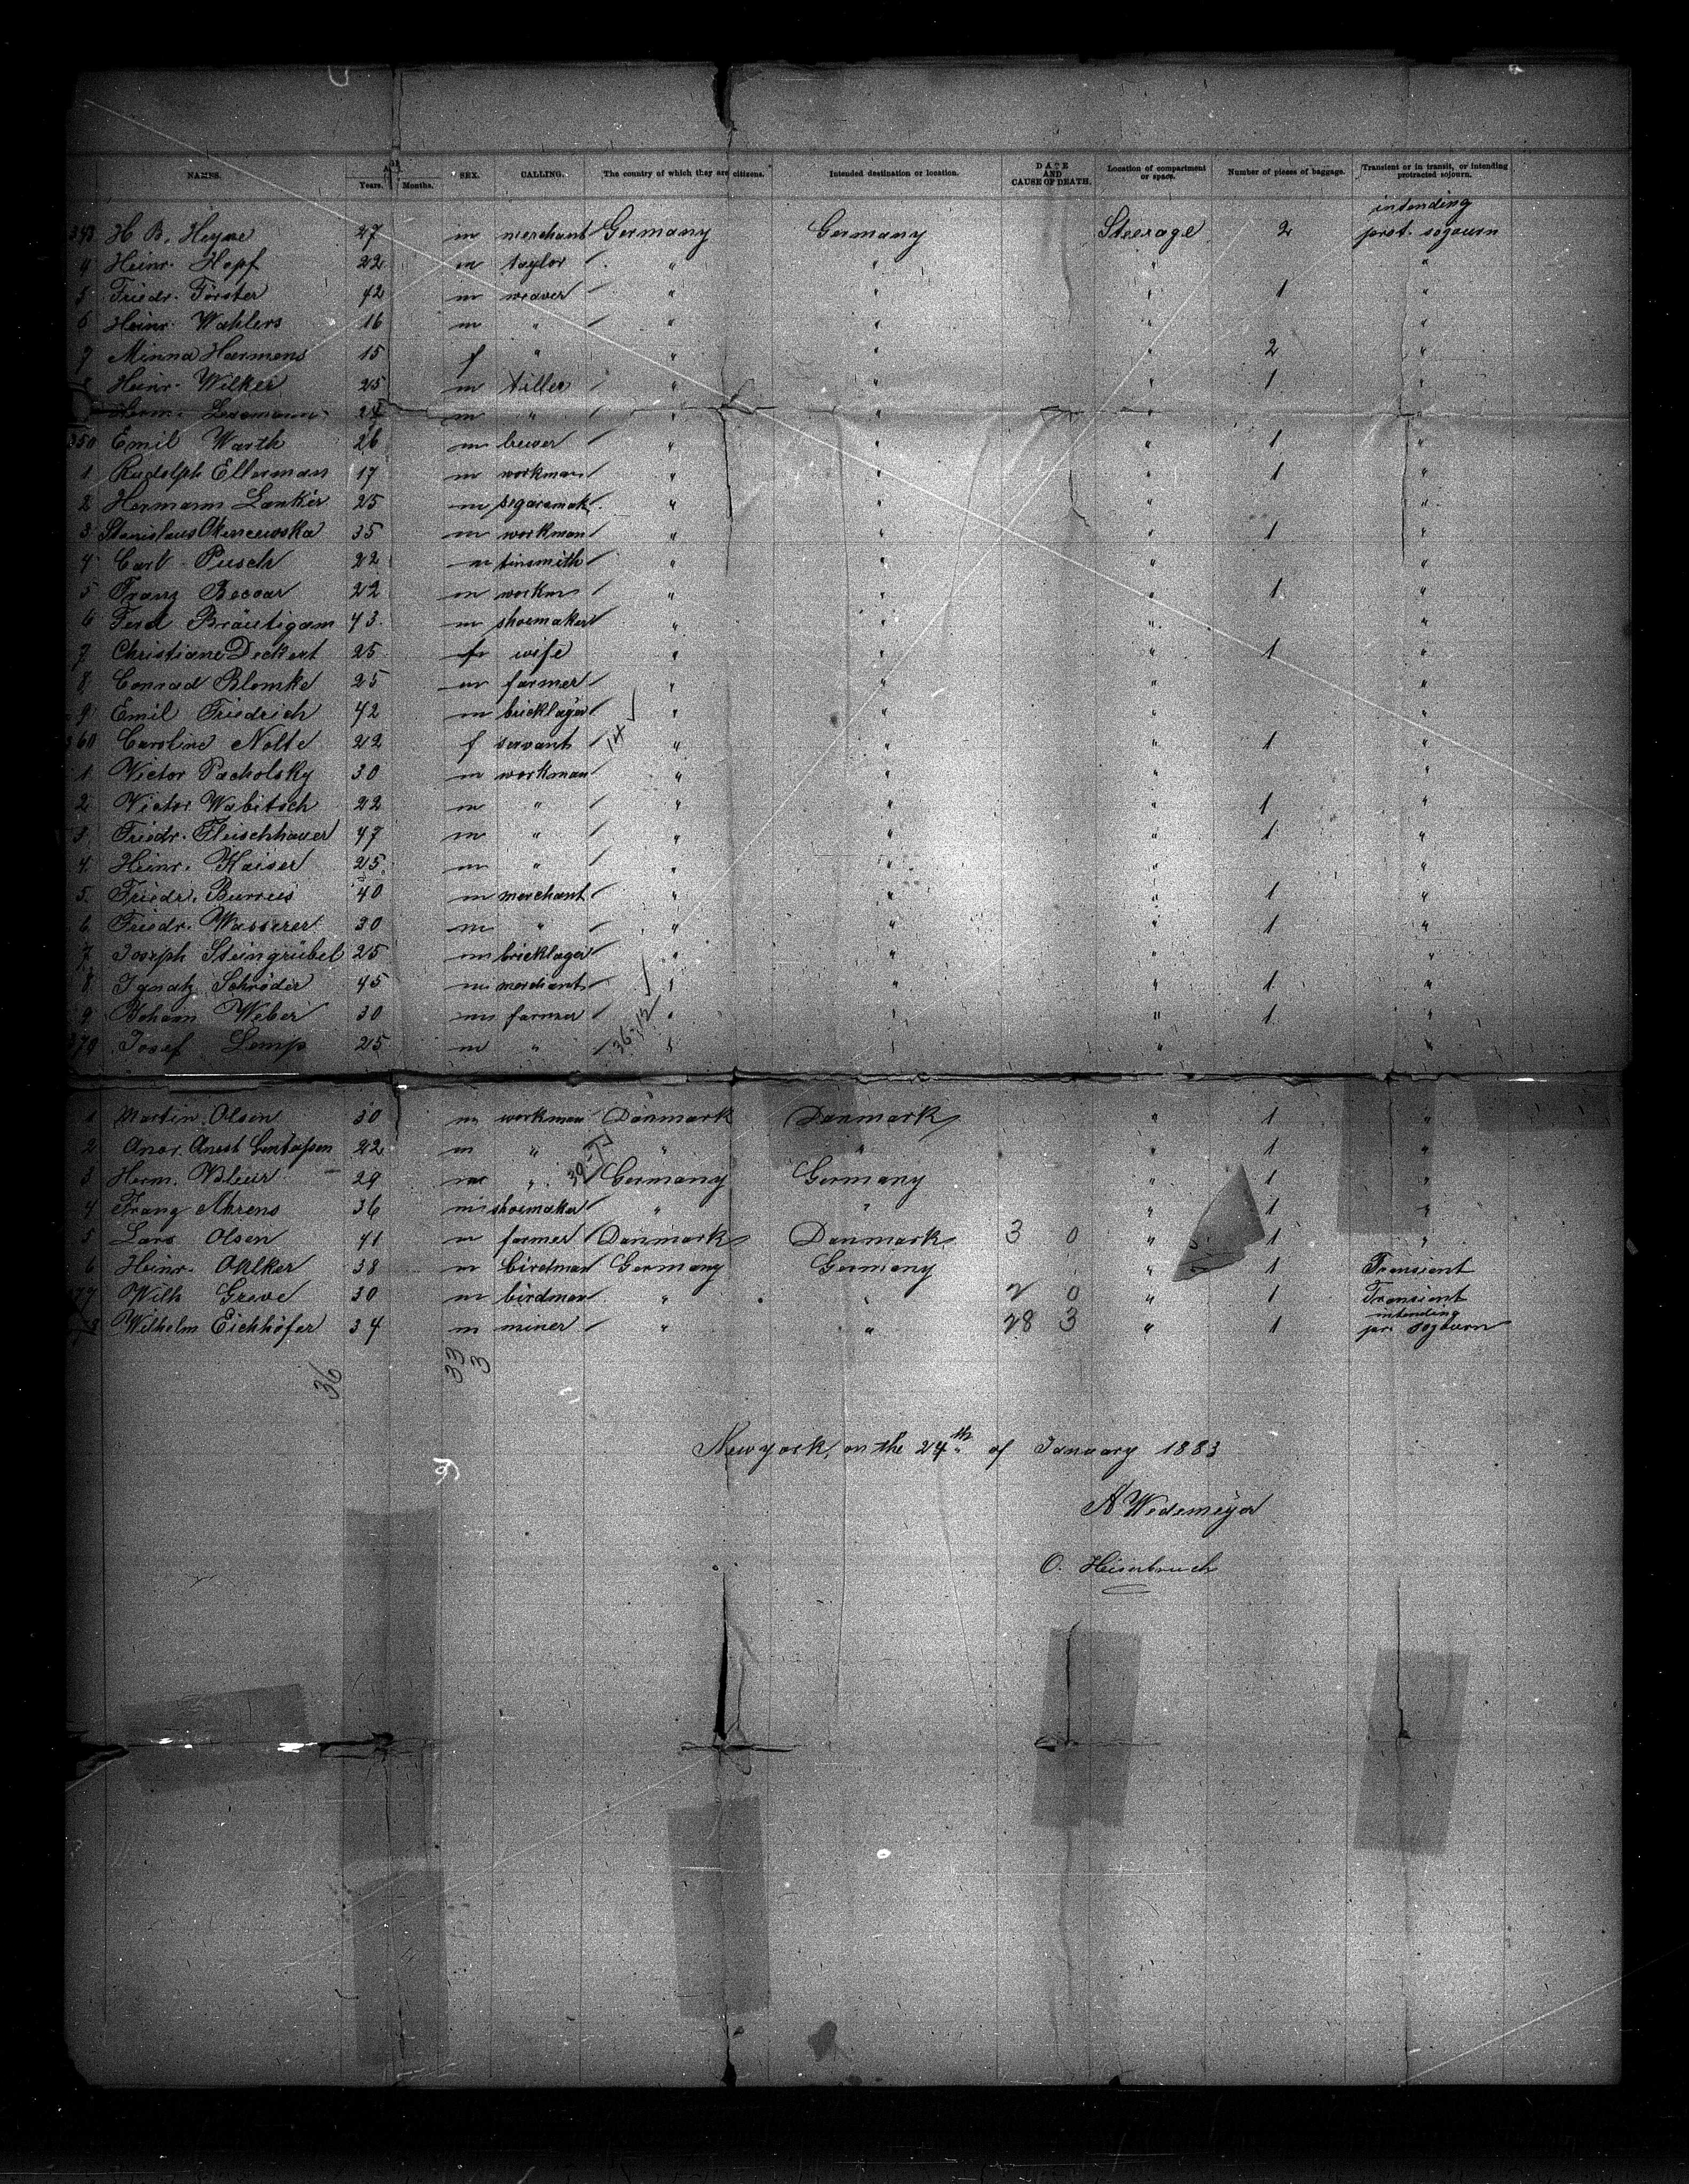 NAMES. AGE. Years. Months. SEX. CALLING. The country of which they are citizens. Intended destination or location. DATE AND CAUSE OF DEATH. Location of compartment or space. Number of pieces of baggage. Transient or in transit, or intending protracted sojourn.
343 H. B. Heyne 27 m merchant Germany Germany Steerage 2 intending prot. sojourn
4 Heinr. Hopf 22 m taylor " " " "
5 Friedr. Förster 42 m weaver " " " 1 "
6 Heinr. Wahlers 16 m " " " " "
7 Minna Harmens 15 f " " " " 2 "
8 Heinr. Wilker 25 m tiller " " " 1 "
Herm. 24 m " " " " "
350 Emil Warth 26 m brewer " " " 1 "
1 Rudolph Ellerman 17 m workman " " " 1 "
2 Hermann Lanker 25 m segarmak. " " " "
3 Stanislaus 35 m workman " " " 1 "
4 Carl Pusch 22 m tinsmith " " " "
5 Franz 22 m workm " " " 1 "
6 Ferd Bräutigam 43 m shoemaker " " " "
7 Christiane Deckert 25 f wife " " " 1 "
8 Conrad Blomke 25 m farmer " " " "
9 Emil Friedrich 42 m bricklayer " " " "
360 Caroline Nolte 22 f servant 14 " " " 1 "
1 Victor Pacholsky 30 m workman " " " "
2 Victor Wabitsch 22 m " " " " 1 "
3 Friedr. Fleischhauer 47 m " " " " 1 "
4 Heinr. Kaiser 25 m " " " " "
5 Friedr. Burrus 40 m merchant " " " 1 "
6 Friedr. Wasserer 30 m " " " " 1 "
7 Joseph Steingrübel 25 m bricklayer " " " "
8 Ignatz Schröder 45 m merchant " " " 1 "
9 Weber 30 m farmer " " " 1 "
370 Josef Lemp 25 m " 36-12 " " " "
1 Martin Olsen 30 m workman Danmark Danmark " 1 "
2 22 m " " " " 1 "
3 Herm. 29 m " Germany Germany " 1 "
4 Franz Ahrens 36 m shoemaker " " " 1 "
5 Lars Olsen 41 m farmer Danmark Danmark 3 0 " 1 "
6 Heinr. Ohlker 38 m birdman Germany Germany " 1 Transient
377 Wilh Greve 30 m birdman " " 2 0 " 1 Transient
378 Wilhelm Eichhöfer 34 m miner " " 28 3 " 1 intending pr. sojourn
36 33 3
Newyork, on the 24th of January 1883
A Wedemeyer
O. Heisenbruch